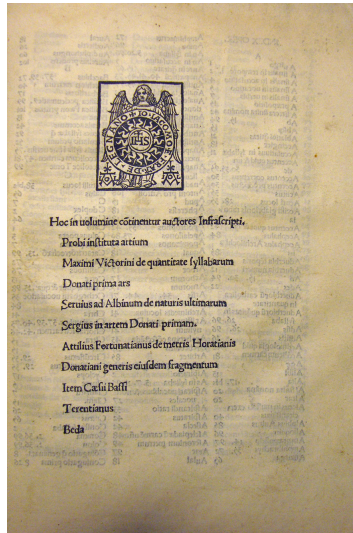 IO·IACOMO E
FRA·DE·LEGNANO
IHS
Hoc in uolumine cōtinentur auctores Infrascripti.
Probi instituta artium
Maximi Victorini de quantitate syllabarum
Donati prima ars
Seruius ad Albinum de naturis ultimarum
Sergius in artem Donati primam.
Attilius Fortunatianus de metris Horatianis
Donatiani generis eiusdem fragmentum
Item Cæsii Bassi
Terentianus
Beda